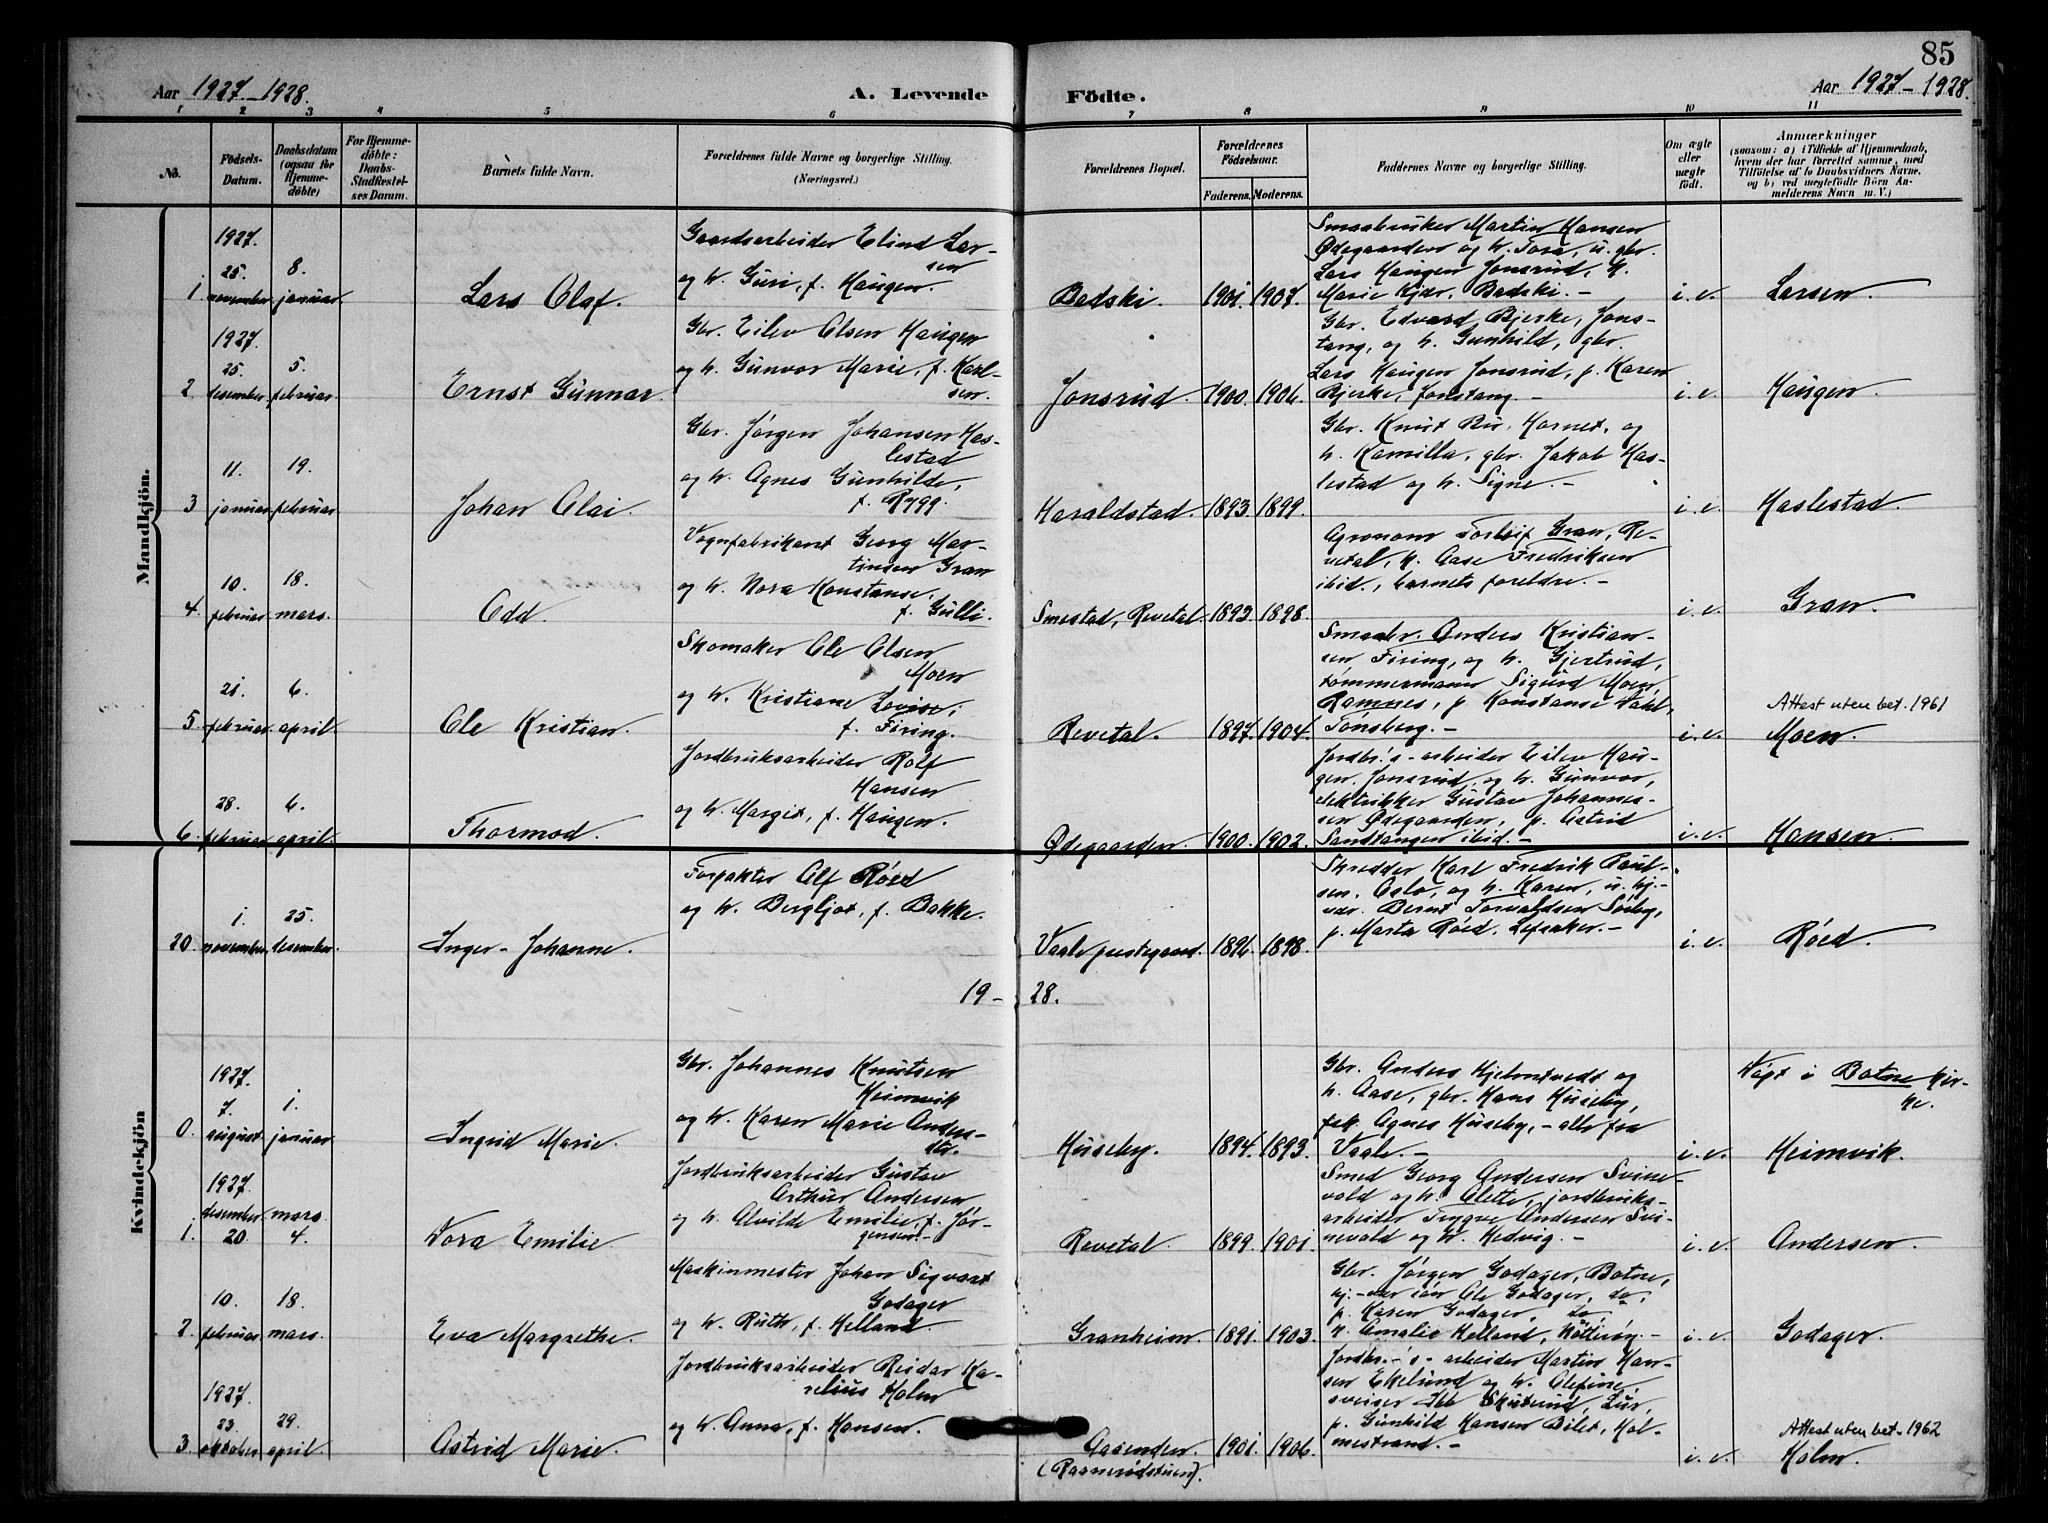 85
Aar 1927-1928. A. Levende Födte. Aar 1927-1928.
1 2 3 4 5 6 7 8 9 10 11
No.
Födsels-Datum.
Daabsdatum (ogsaa for Hjemmedöbte)
For Hjemmedöbte: Daabs-Stadfæstelses Datum.
Barnets fulde Navn.
Forældrenes fulde Navne og borgerlige Stilling. (Næringsvei.)
Forældrenes Bopæl.
Forældrenes Födselsaar. Faderens. Moderens.
Faddernes Navne og borgerlige Stilling.
Om ægte eller uægte födt.
Anmærkninger (saasom: a) i Tilfælde af Hjemmedaab, hvem der har forrettet samme, med Tilföielse af to Daabsvidners Navne, og b) ved uægtefödte Börn Anmelderens Navn m. V.)
Mandkjön.
1927.
1 25. november. 8. januar.
Lars Olaf.
Gaardsarbeider Elind Larsen
og h. Guri, f. Haugen.
Badski. 1901. 1907.
Smaabruker Martin Hansen
Ødegaarden og h. Tora, u. gbr.
Lars Haugen Jonsrud, h.
Marie Kjær, Badski. -
i. e. Larsen.
1927.
2 25. desember. 5. februar.
Ernst Gunnar.
Gbr. Eilev Olsen Haugen
og h. Gunvor Marie, f. Karlsen.
Jonsrud. 1900. 1906.
Gbr. Edvard Bjerke, Jonstang, og h. Gunhild, gbr.
Lars Haugen Jonsrud, p. Karen
Bjerke, Jonstang. -
i. e. Haugen.
3 11. januar. 19. februar.
Johan Olai.
Gbr. Jørgen Johansen Haslestad
og h. Agnes Gunhilde,
f. Rygg.
Haraldstad. 1893. 1899.
Gbr. Knut Bu, Hornet, og
h. Kamilla, gbr. Jakob Haslestad og h. Signe. -
i. e. Haslestad.
4. 10. februar. 18. mars.
Odd.
Vognfabrikant Georg Martinsen Gran
og h. Nora Konstanse,
f. Gulli.
Smestad, Revetal. 1893. 1898.
Agronom Torleif Gran, Revetal, h. Aase Fredriksen
ibid., barnets foreldre. -
i. e. Gran.
5 21. februar. 6. april.
Ole Kristian.
Skomaker Ole Olsen
Moen
og h. Kristiane Lovise,
f. Firing.
Revetal. 1897. 1904.
Smaabr. Anders Kristiansen Firing, og h. Gjertrud,
tømmermann Sigurd Moen,
Ramnes, p. Konstanse Dahl,
Tønsberg. -
i. e. Attest uten bet. 1961
Moen.
6. 28. februar. 6. april.
Thormod.
Jordbruksarbeider Rolf
Hansen
og h. Margit, f. Haugen.
Ødegaarden. 1900. 1902.
Jordbr.'s-arbeider Eilev Haugen, Jonsrud, og h. Gunvor,
elektrikker Gustav Johannessen Ødegaarden, p. Astrid
Sandtangen ibid. -
i. e. Hansen.
Kvindekjön
20. 1. november. 25. desember.
Inger-Johanne.
Forpakter Alf Røed
og h. Bergljot, f. Bakke.
Vaale prestegaard. 1896. 1898.
Skredder Karl Fredrik Paulsen, Oslo, og h. Karen,
Bernt Torvaldsen Seeby,
p. Marta Røed, Lefsaker. -
i. e. Røed.
19-28.
1927.
0. 7. august. 1. januar.
Ingrid Marie.
Gbr. Johannes Knutsen
Heimvik
og h. Karen Marie Andersdtr.
Huseby. 1894. 1893.
Gbr. Anders Hjelmtvedt og
h. Aase, gbr. Hans Huseby,
frk. Agnes Huseby, - alle fra
Vaale. -
i. e. Døpt i Botne kirke.
Heimvik.
1927.
1. desember 20 mars. 4.
Nora Emilie.
Jordbruksarbeider Gustav
Arthur Andersen
og h. Alvilde Emilie, f. Jørgensen. -
Revetal. 1899. 1901.
Smed Georg Andersen Svinevald og h. Alette, jordbruksarbeider Trygve Andersen Svinevald og h. Hedvig. -
i. e. Andersen.
2. 10. februar. 18. mars.
Eva Margrethe.
Maskinmester Johan Sigvart
Godager
og h. Ruth, f. Helland
Granheim. 1891. 1903.
Gbr. Jørgen Godager, Botne,
Ole Godager, do.,
p. Karen Godager, do.,
h. Amalie Helland, Nøtterøy. -
i. e. Godager.
1927
3 23. oktober. 29. april.
Astrid Marie.
Jordbruksarbeider Reidar Karelius Holm
og h. Anna, f. Hansen.
Aasenden. (Raanerødstuen). 1901. 1906.
Jordbr.-'s-arbeider Martin Hansen Ekelund og h. Olefine,
sveiser Skuterud, Lur,
p. Gunhild Hansen Bilet, Holmestrand. -
i. e. Attest uten bet. 1962
Holm.